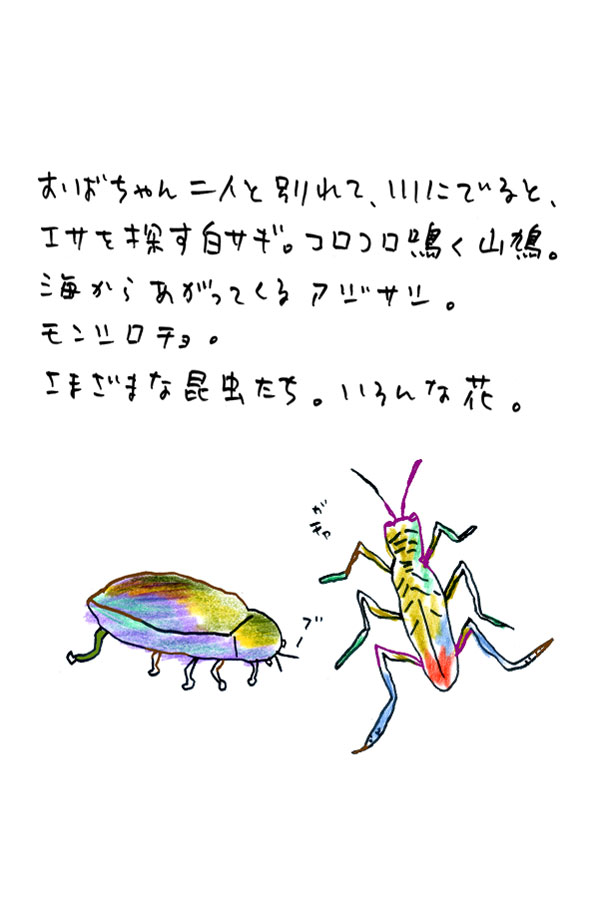 おばちゃん二人と別れて、川にでると、
エサを探す白サギ。コロコロ鳴く山鳩。
海からあがってくるアジサシ。
モンシロチョ。
さまざまな昆虫たち。いろんな花。
ガチャ
ブー